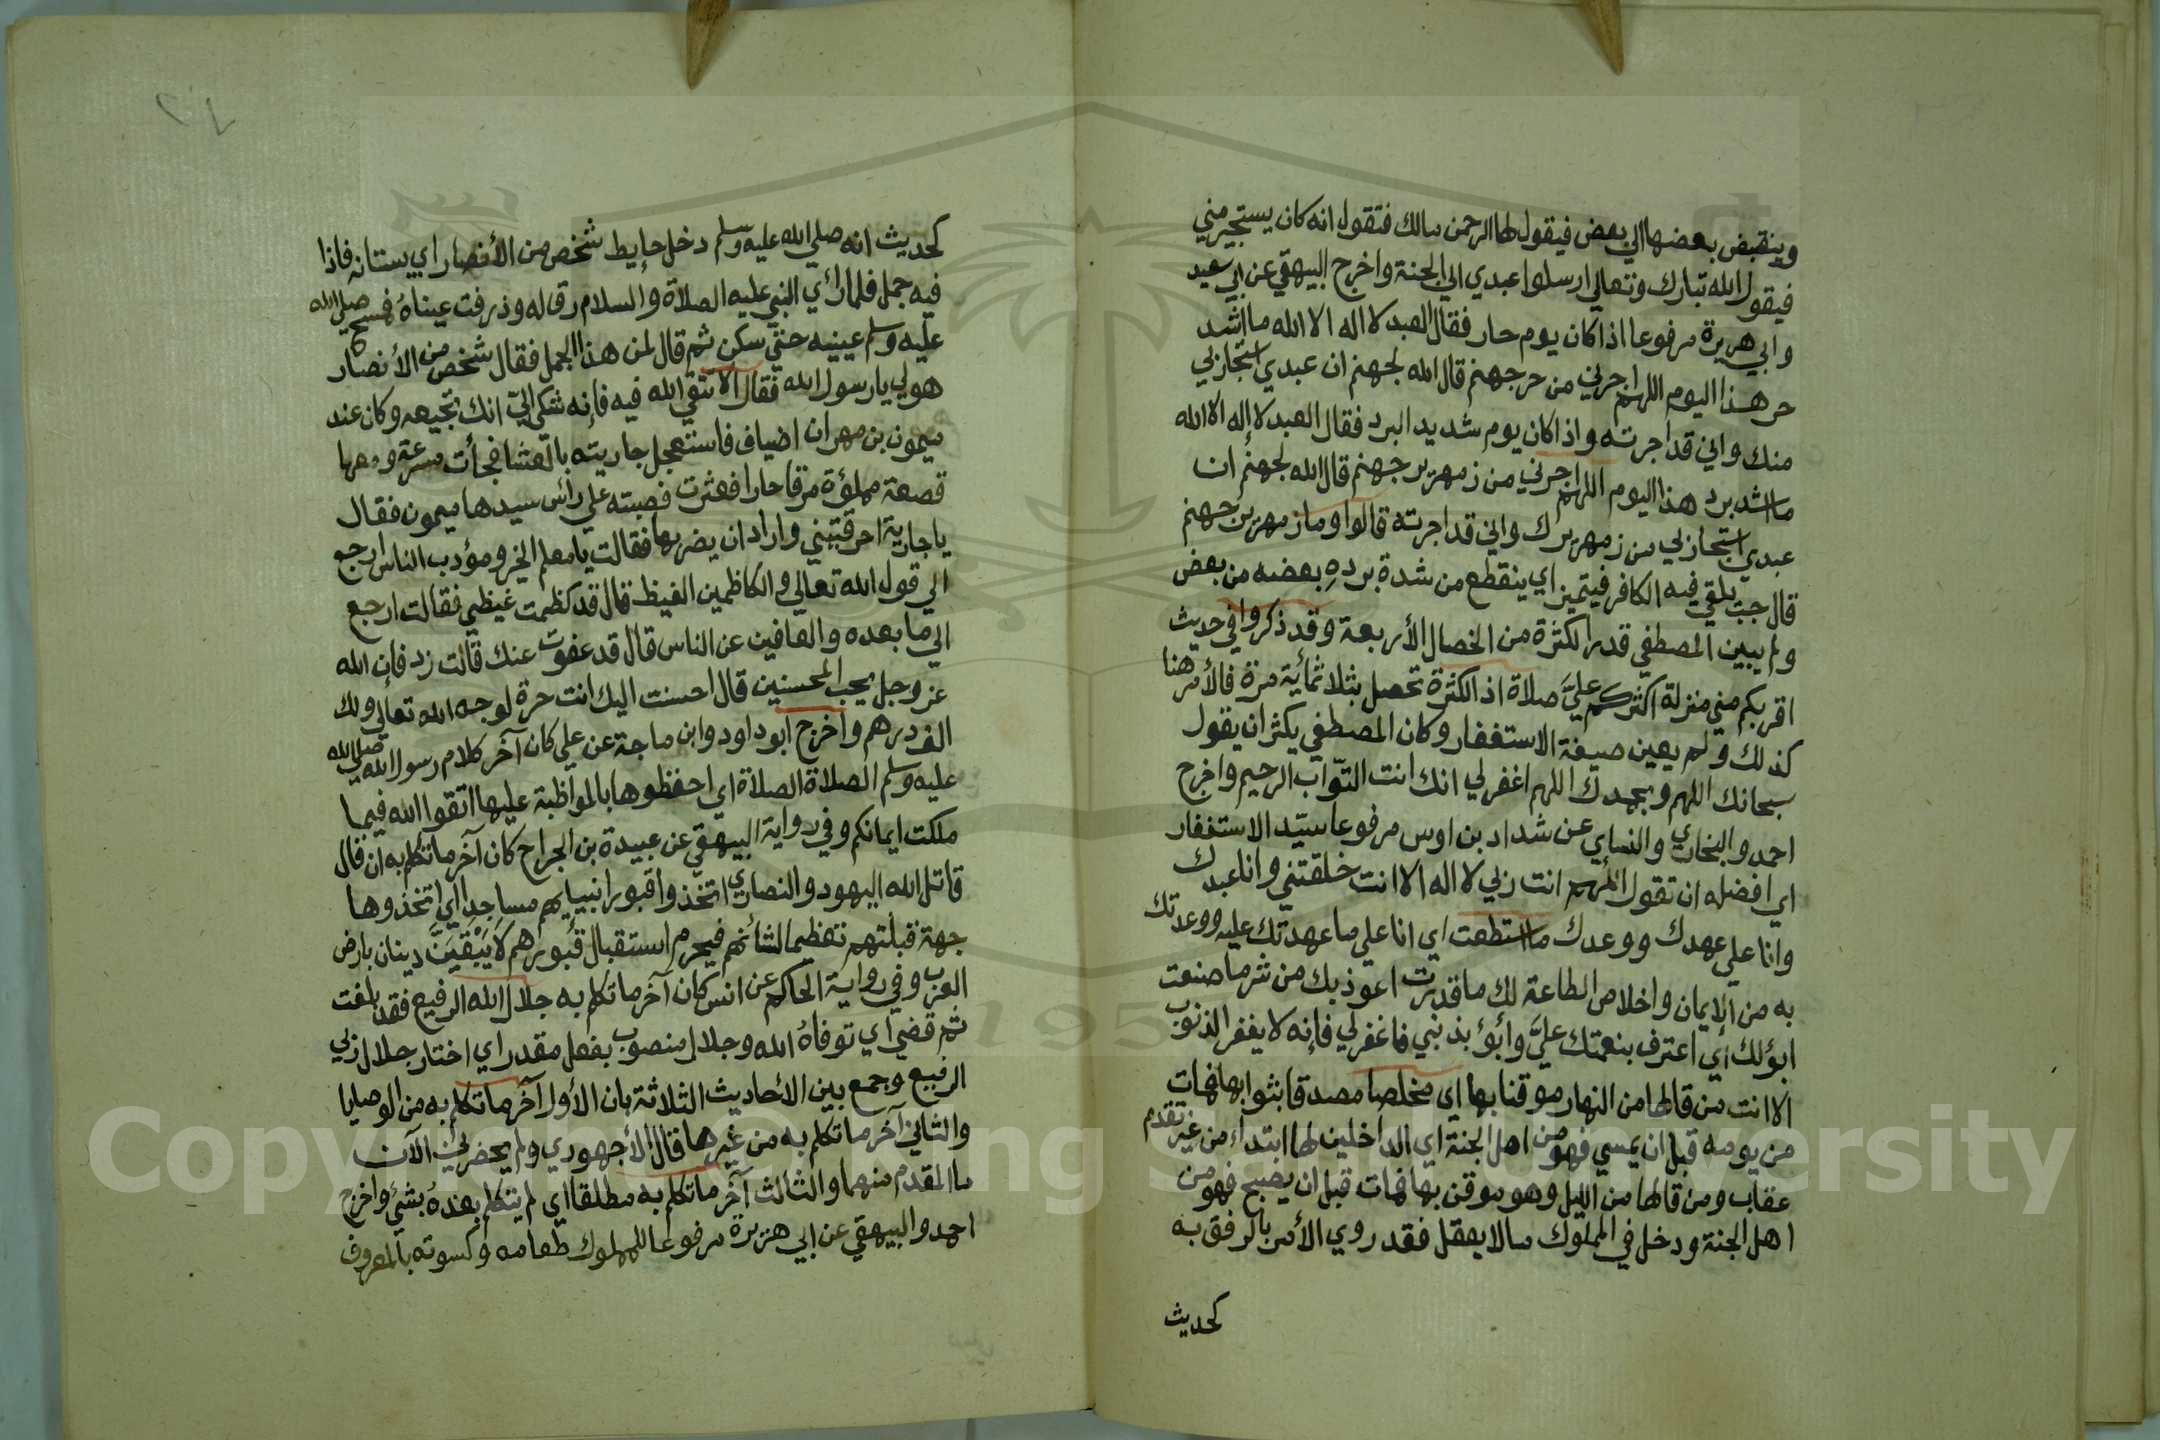 وينقبض بعضها الي بعض فيقول لها الرحمن مالك فتقول انه كان يستجير مني
فيقول الله تبارك وتعالي ارسلوا عبدي الي الجنة واخرج البيهقي عن ابي سعيد
وابي هريرة مرفوعا اذا كان يوم حار فقال العبد لا اله الا الله ما اشد
حر هذا اليوم اللهم اجرني من حر جهنم قال الله لجهنم ان عبدي استجار بي
منك واني قد اجرته واذا كان يوم شديد البرد فقال العبد لا إله الا الله
ما اشد برد هذا اليوم اللهم اجرني من زمهرير جهنم قال الله لجهنم ان
عبدي استجار بي من زمهريرك واني قد اجرته قالوا وما زمهرير جهنم
قال جب يلقي فيه الكافر فيتميز اي ينقطع من شدة برده بعضه من بعض
ولم يبين المصطفي قدر الكثرة من الخصال الأربعة وقد ذكروا في حديث
اقربكم مني منزلة اكثركم عليَّ صلاة اذ الكثرة تحصل بثلاثمائة مرة فالأمر هنا
كذلك ولم يعين صيغة الاستغفار وكان المصطفي يكثر ان يقول
سبحانك اللهم وبحمدك اللهم اغفر لي انك انت التوّاب الرحيم واخرج
احمد والبخاري والنساي عن شداد بن اوس مرفوعا سيّد الاستغفار
اي افضله ان تقول اللهم انت ربي لا اله الا انت خلقتني وانا عبدك
وانا علي عهدك ووعدك ما استطعت اي انا علي ما عهدتك عليه ووعدتك
به من الإيمان واخلاص الطاعة لك ما قدرت اعوذ بك من شر ما صنعت
ابؤ لك أي اعترف بنعمتك عليَّ وأبؤ بذنبي فاغفر لي فإنه لا يغفر الذنوب
الا انت من قالها من النهار موقنا بها اي مخلصا مصدقا بثوابها فمات
من يومه قبل ان يمسي فهو من اهل الجنة اي الداخلين لها ابتداء من غير تقدم
عقاب ومن قالها من الليل وهو موقن بها فمات قبل ان يصبح فهو من
اهل الجنة ودخل في المملوك ما لا يعقل فقد روي الأمر بالرفق به
كحديث
كحديث انه صلي الله عليه وسلم دخل حايط شخص من الأنصار اي بستانه فاذا
فيه جمل فلما رأي النبي عليه الصلاة والسلام رق له وذرفت عيناهُ فمسح صلي الله
عليه وسلم عينيه حتي سكن ثم قال لمن هذا الجمل فقال شخص من الأنصار
هو لي يا رسول الله فقال الا تتقي الله فيه فإنه شكي اليّ انك تجيعه وكان عند
ميمون بن مهران اضياف فاستعجل جاريته بالعشا فجأت مسرعة ومعها
قصعة مملؤة مرقا حارا فعثرت فصبته علي رأس سيدها ميمون فقال
يا جارية احرقتيني واراد ان يضربها فقالت يا معلم الخير ومؤدب الناس ارجع
الي قول الله تعالي والكاظمين الغيظ قال قد كظمت غيظي فقالت ارجع
الي ما بعده والعافين عن الناس قال قد عفوت عنك قالت زد فإن الله
عز وجل يحب المحسنين قال احسنت اليك انت حرة لوجه الله تعالي ولك
الف درهم واخرج ابو داود وابن ماجة عن علي كان آخر كلام رسول الله صلي الله
عليه وسلم الصلاة الصلاة اي احفظوها بالمواظبة عليها اتقوا الله فيما
ملكت ايمانكم وفي رواية البيهقي عن عبيدة بن الجراح كان آخر ما تكلم به ان قال
قاتل الله اليهود والنصاري اتخذوا قبور انبيايهم مساجد اي اتخذوها
جهة قبلتهم تعظيما لشأنهم فيحرم استقبال قبورهم لا يَبْقَيَنَّ دينان بارض
العرب وفي رواية الحاكم عن انس كان آخر ما تكلم به جلال الله الرفيع فقد بلغت
ثم قضي اي توفاهُ الله وجلال منصوب بفعل مقدر اي اختار جلال ربي
الرفيع وجمع بين الأحاديث الثلاثة بان الأول آخر ما تكلم به من الوصايا
والثاني آخر ما تكلم به من غيرها قال الأجهوري ولم يحضرني الآن
ما المقدم منهما والثالث آخر ما تكلم به مطلقا اي لم يتكلم بعدهُ بشيء واخرج
احمد والبيهقي عن ابي هريرة مرفوعا للمملوك طعامه وكسوته بالمعروف